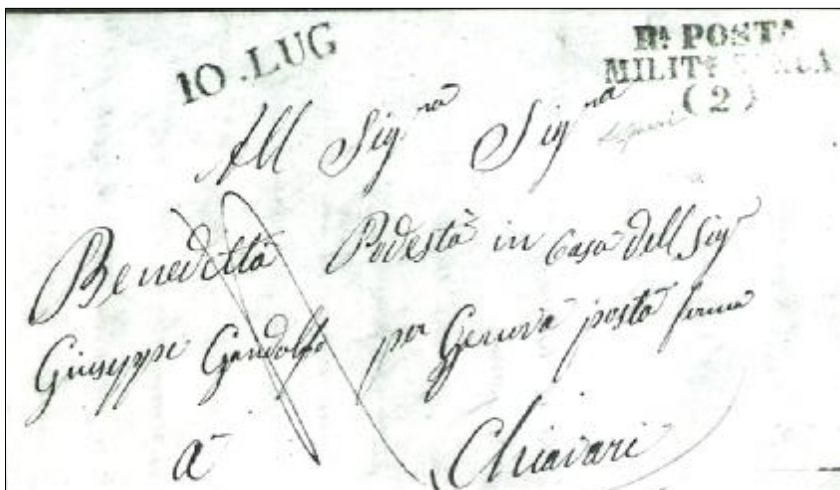 10.LUG
Rª POSTA
MILITARE
(2)
All Sigra Signa
Benedetta Podestà in Casa dell Sigr
Giuseppe Gandolfo per Genova posta ferma
a Chiavari